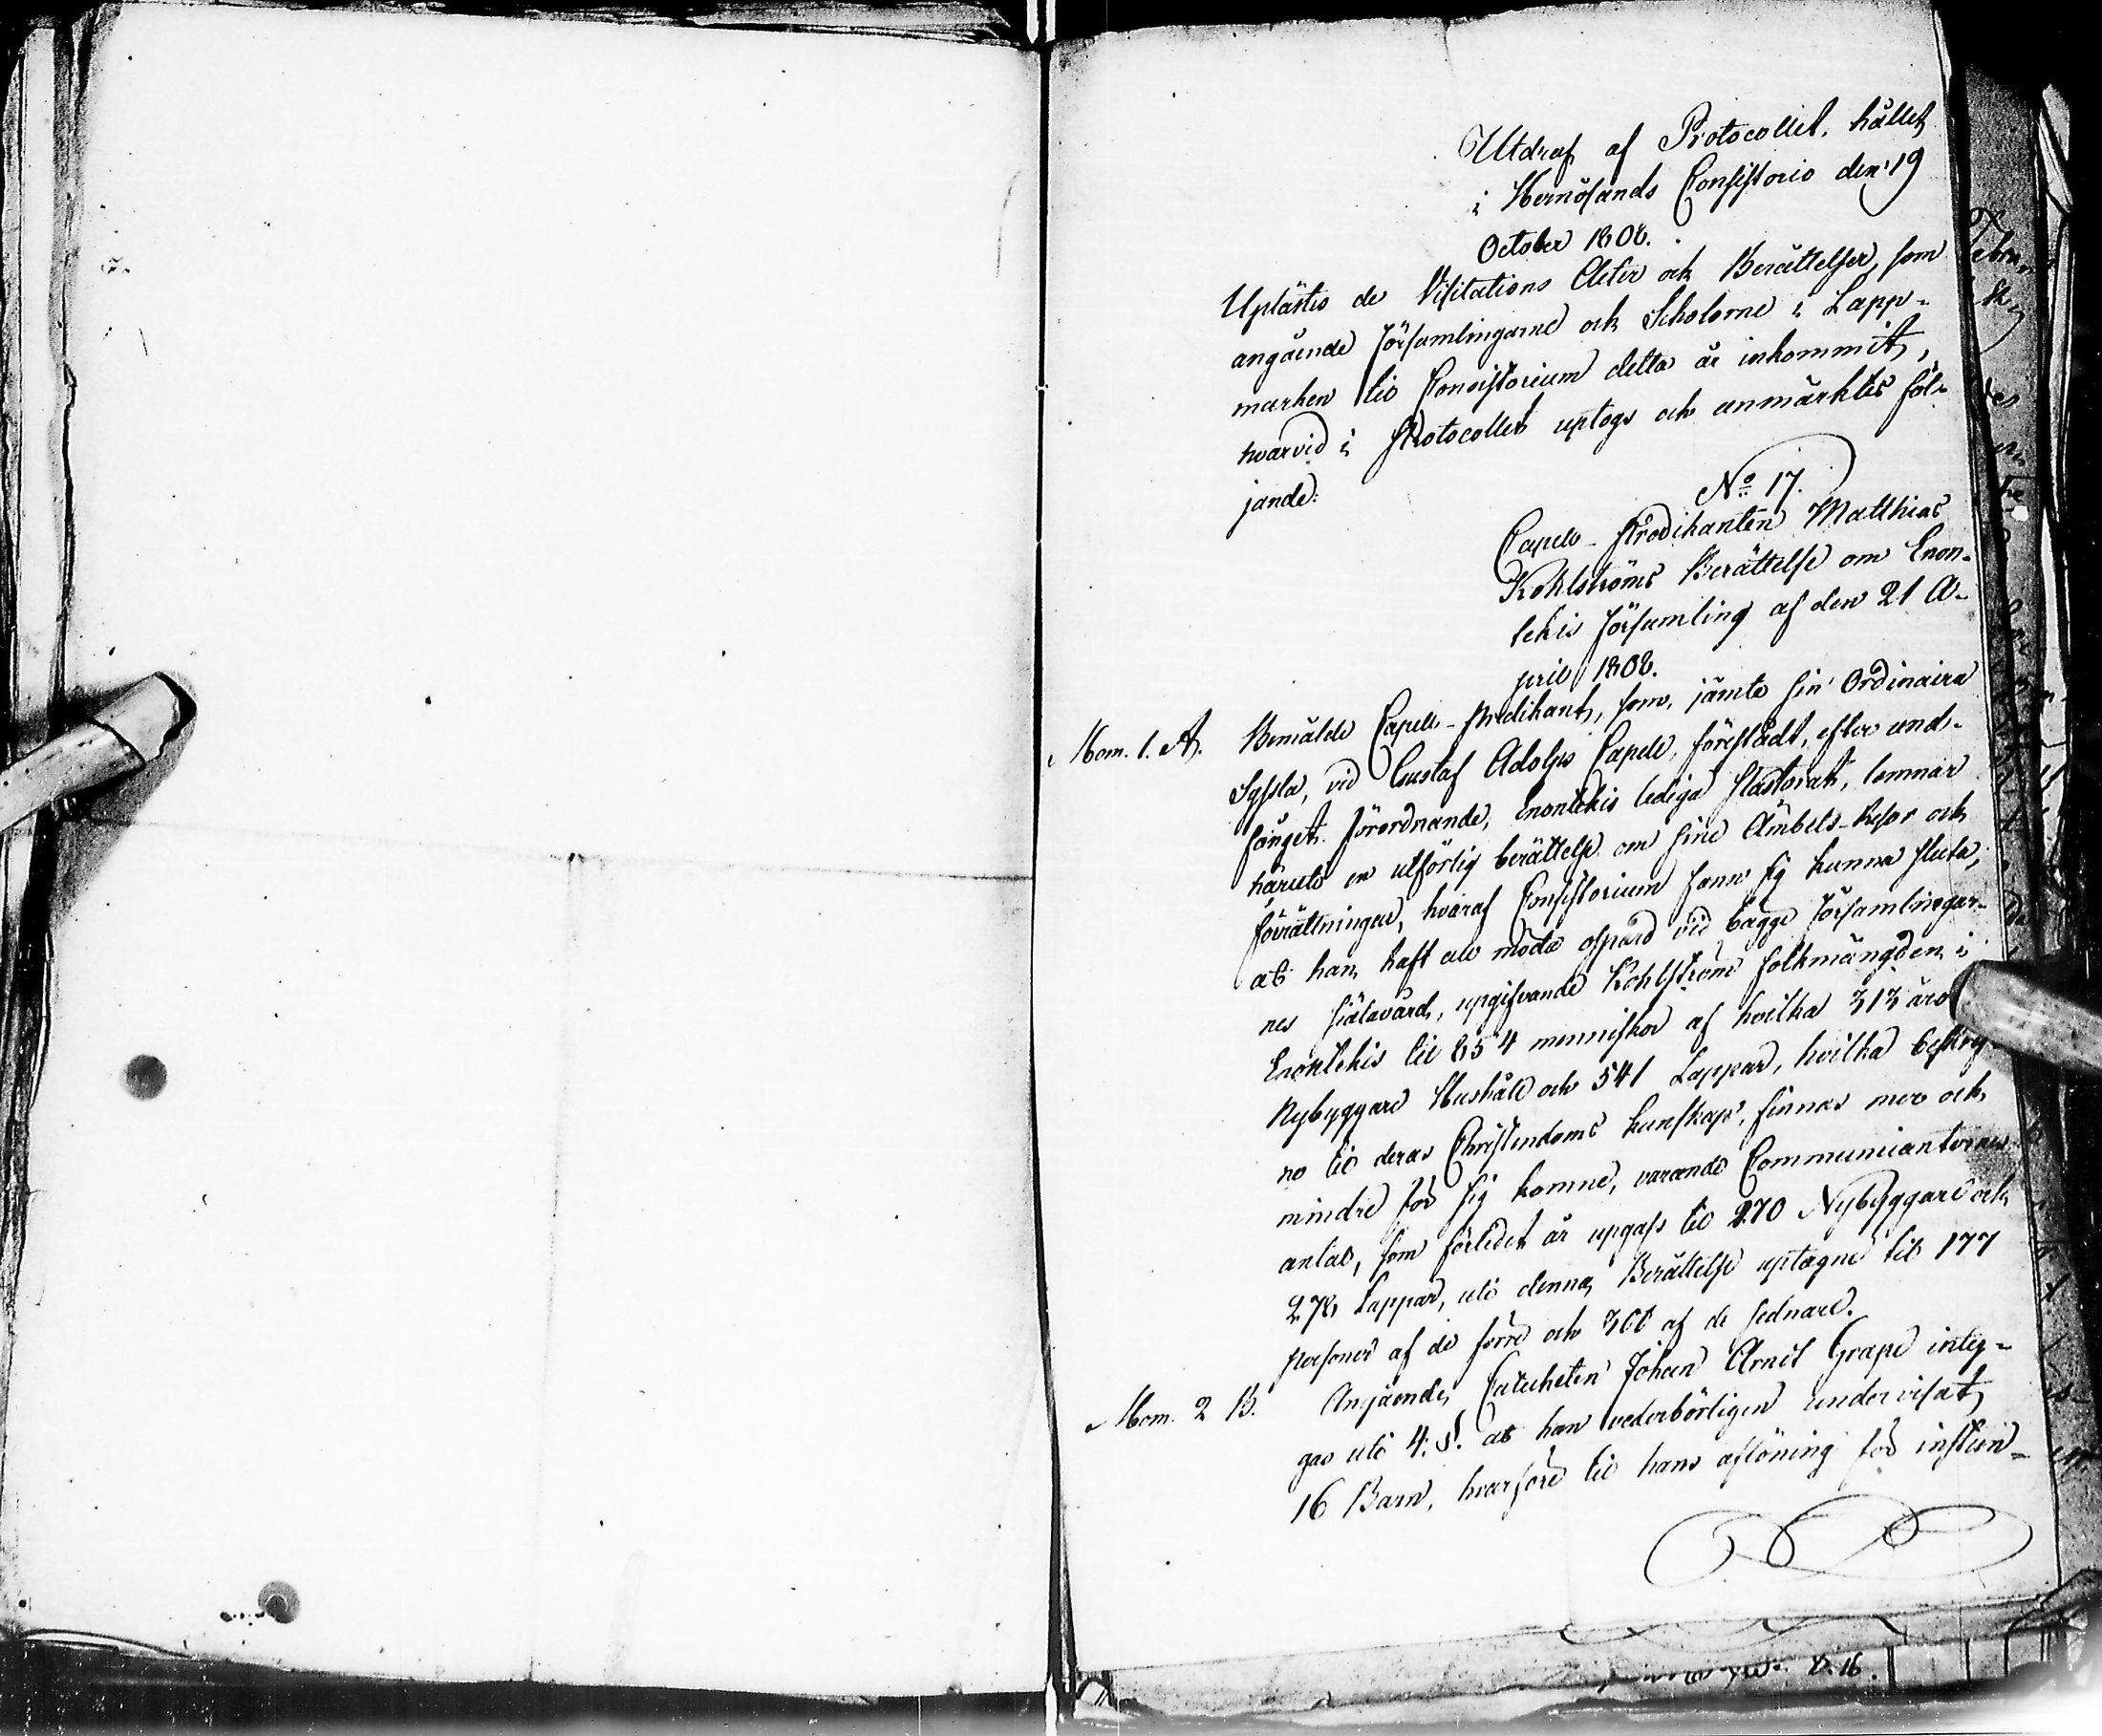 Utdrag af Protocollet, hållet
i Hernösands Consistorio den 19
October 1808.
Uplästes de Visitations Acter och Berättelser, som
angående Församlingarne och Scholorne i Lapp-
marken til Consistorium detta år inkommit,
hvarvid i Protocollet uptogs och anmärktes föl-
jande:
No 17.
Capells-Predikanten Matthias
Kohlströms Berättelse om Enon-
tekis Församling af den 21 A-
pril 1808.
Mom. 1. A. Bemälde Capells-Predikant, som, jämte sin Ordinaira
Syssla, vid Gustaf Adolphs Capell, förestådt, efter und-
fånget Förordnande, Enontekis lediga Pastorat, lemnar
häruti en utförlig berättelse om sine Ämbets-Resor och
förrättningar, hvaraf Consistorium fann sig kunna sluta,
at han haft all möda ospard vid bägge Församlingar-
nes Siälavård, upgifvande Kohlström folkmängden i
Enontekis til 854 menniskor af hvilka 313 äro
Nybyggare Hushåll och 541 Lappar, hvilka
til deras Christendoms kunskap, finnas mer och
mindre för sig komne, varande Communicanternes
antal, som förledet år upgafs til 270 Nybyggare och
278 Lappar, uti denna Berättelse uptagne til 177
personer af de förre och 366 af de sednare.
Mom. 2 B. Angående Catecheten Johan Arndt Grape intyg-
gas uti 4. §. at han vederbörligen undervisat
16 Barn, hvarföre til hans aflöning för